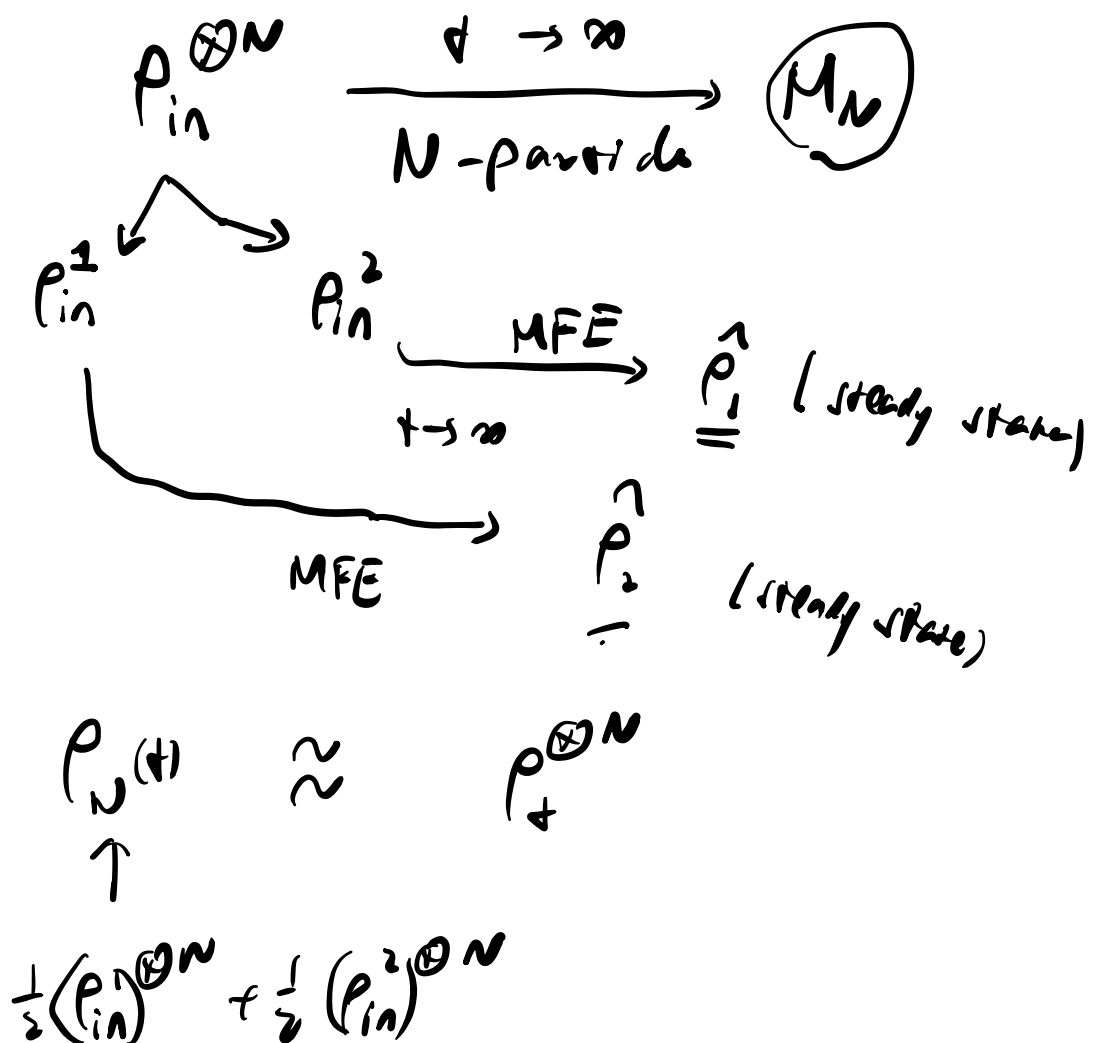 ρ_in^{⊗N} t → ∞ M_N
N-particle
ρ_in^1 ρ_in^2 MFE ρ̂_1 (steady state)
t → ∞
MFE ρ̂_2 (steady state)
ρ_N(t) ≈ ρ_t^{⊗N}
↑
1/2 (ρ_in^1)^{⊗N} + 1/2 (ρ_in^2)^{⊗N}